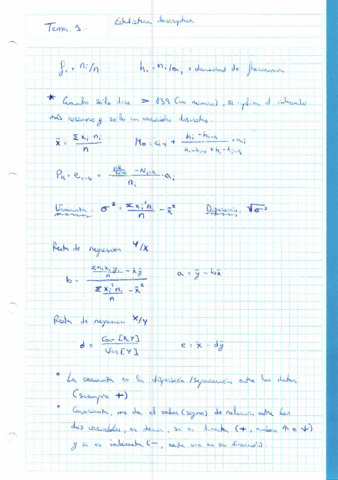 Estadística descriptiva
Tema. 1
fi = ni/n hi = ni/ai = densidad de frecuencia
* Cuando solo dice > 839 (un numero), se aplica el intervalo
más cercano y solo en variables discretas.
x̄ = Σxi ni / n Mo = ei-1 + (hi - hi-1) / (hi - hi-1 + hi - hi+1) · ai
Pk = ei-1 + (nk/100 - Ni-1) / ni · ai
Varianza: σ² = Σxi² ni / n - x̄² Dispersión: √σ²
Recta de regresion Y/X
b = (Σni xi yi / n - x̄ȳ) / (Σxi² ni / n - x̄²) a = ȳ - bx̄
Recta de regresion X/Y
d = Cov [X,Y] / Var [Y] c = x̄ - dȳ
* La varianza es la dispersión/separación entre los datos
(siempre +)
* Covarianza, me da el valor (signo) de relación entre las
dos variables, es decir, si es directa (+, ambas ↑ o ↓)
y si es indirecta (-, cada una en su dirección)